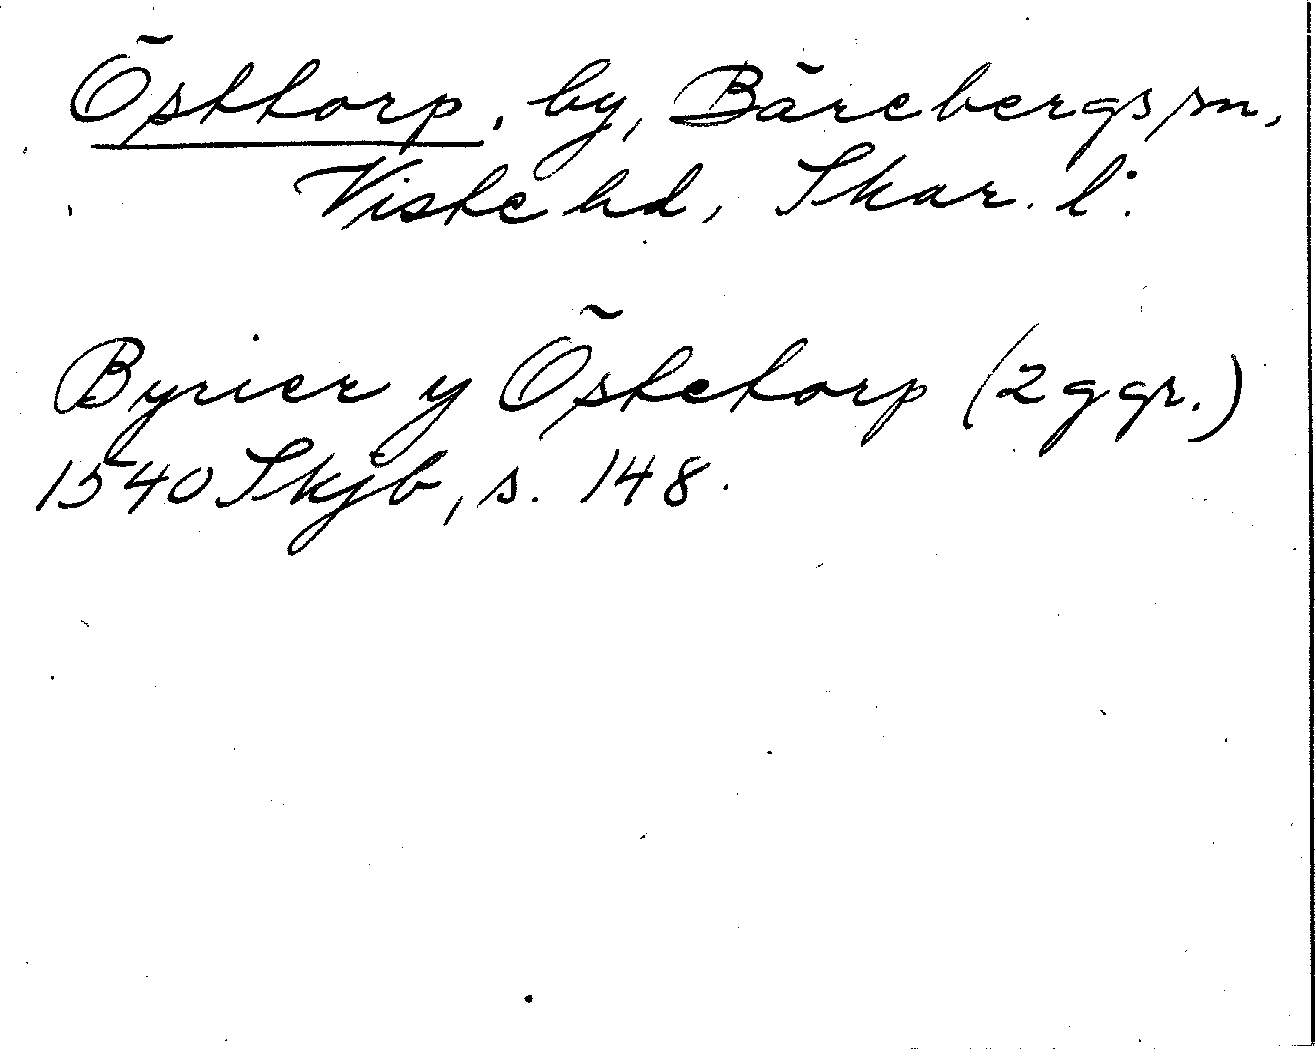 Östtorp, by, Bärebergs sn,
Viste hd, Skar. l:
Byrier y Östetorp (2 ggr.)
1540 Skjb, s. 148.